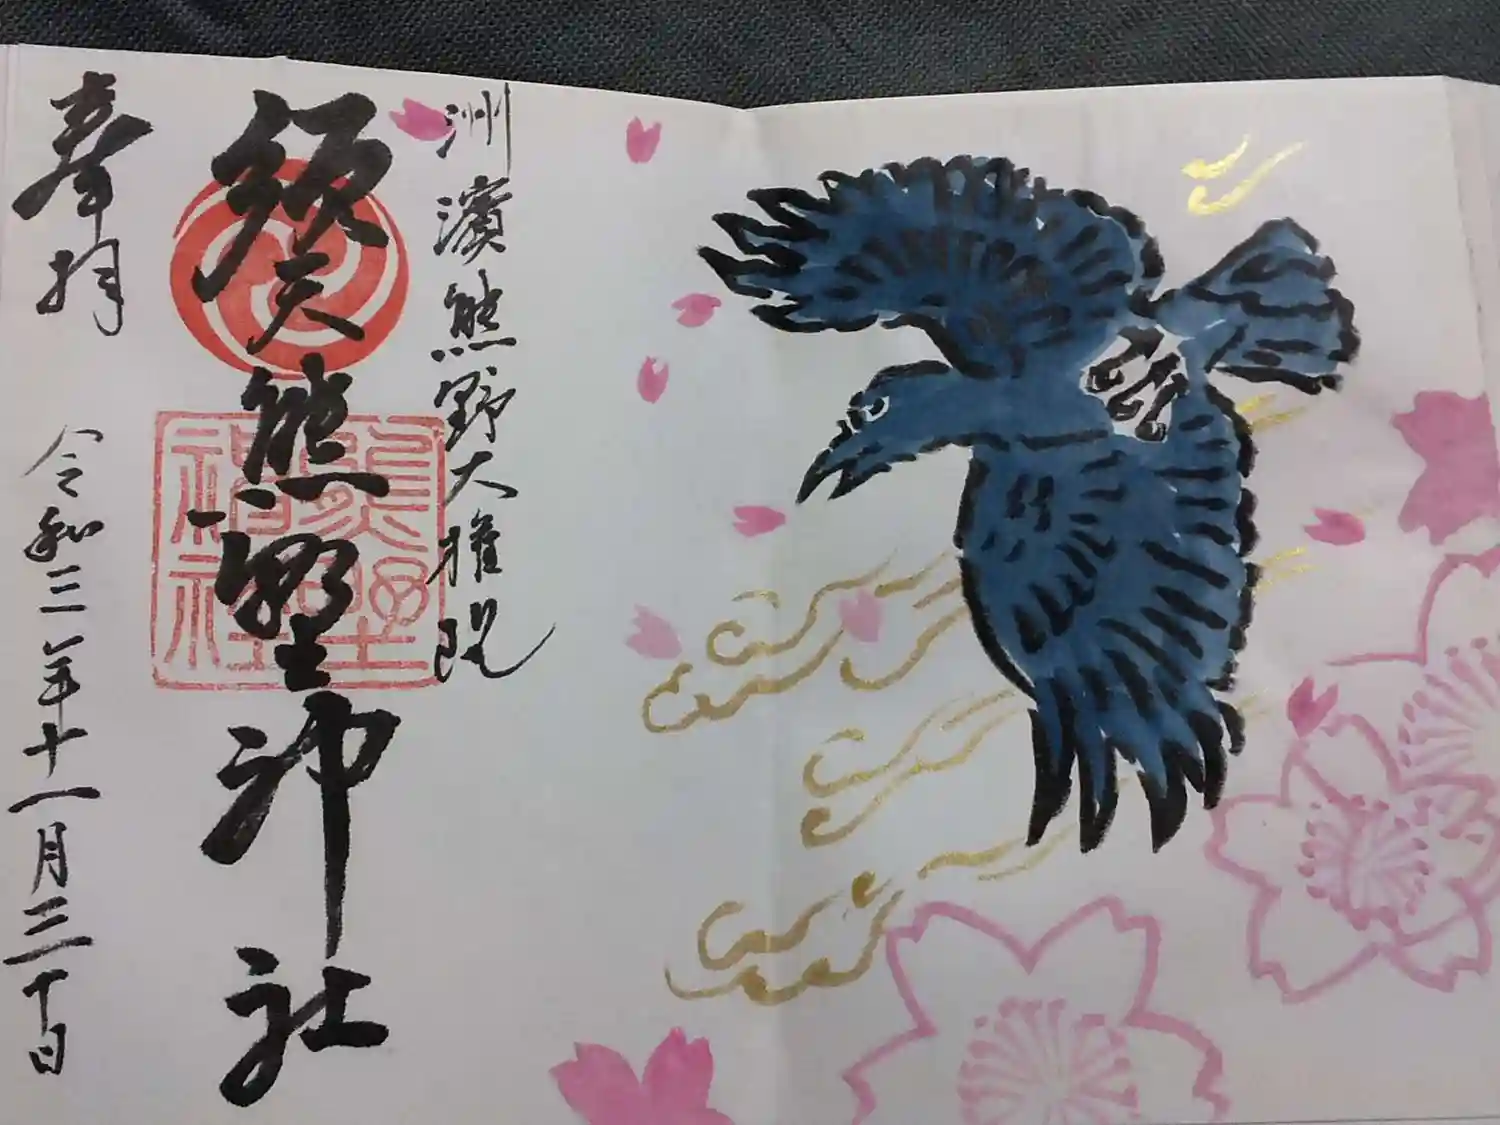 洲濱熊野大権現
須天熊野神社
熊野
神社
奉拝
令和三年十一月三十日